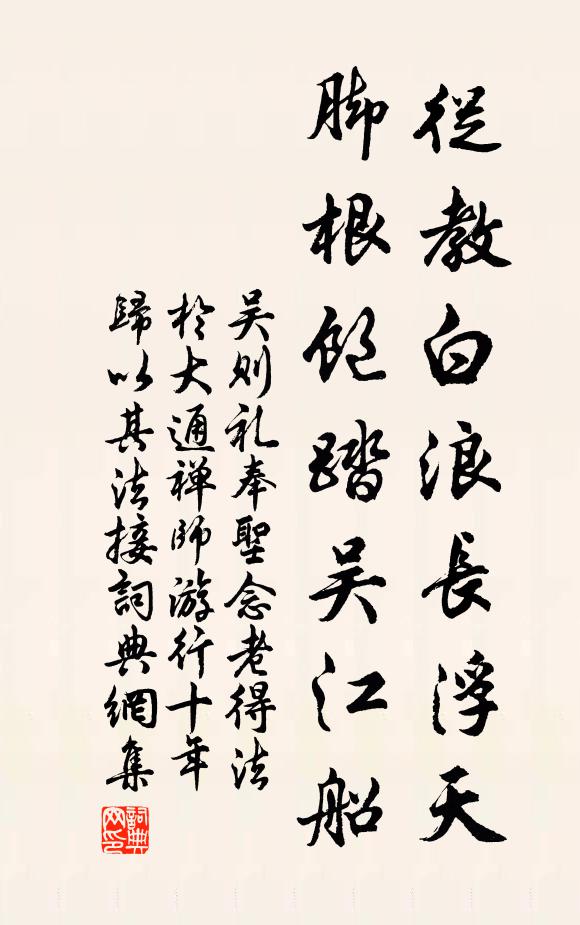 從教白浪長浮天
脚根飽踏吴江船
吴則礼奉聖念老得法
於大通禅師游行十年
歸以其法接詞典網集
詞典网印